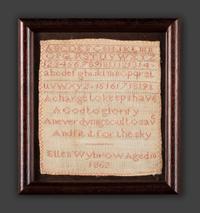 ABCDEFGHIJKLMN
OPQRSTUVWXYZ
1234567891011121314
abcdefghijklmnopqrst
uvwxyz 15161718192
A charge to keep i have
A God to glorify
A never dying soul to save
And fit it for the sky
Ellen Wybrow Aged
1862